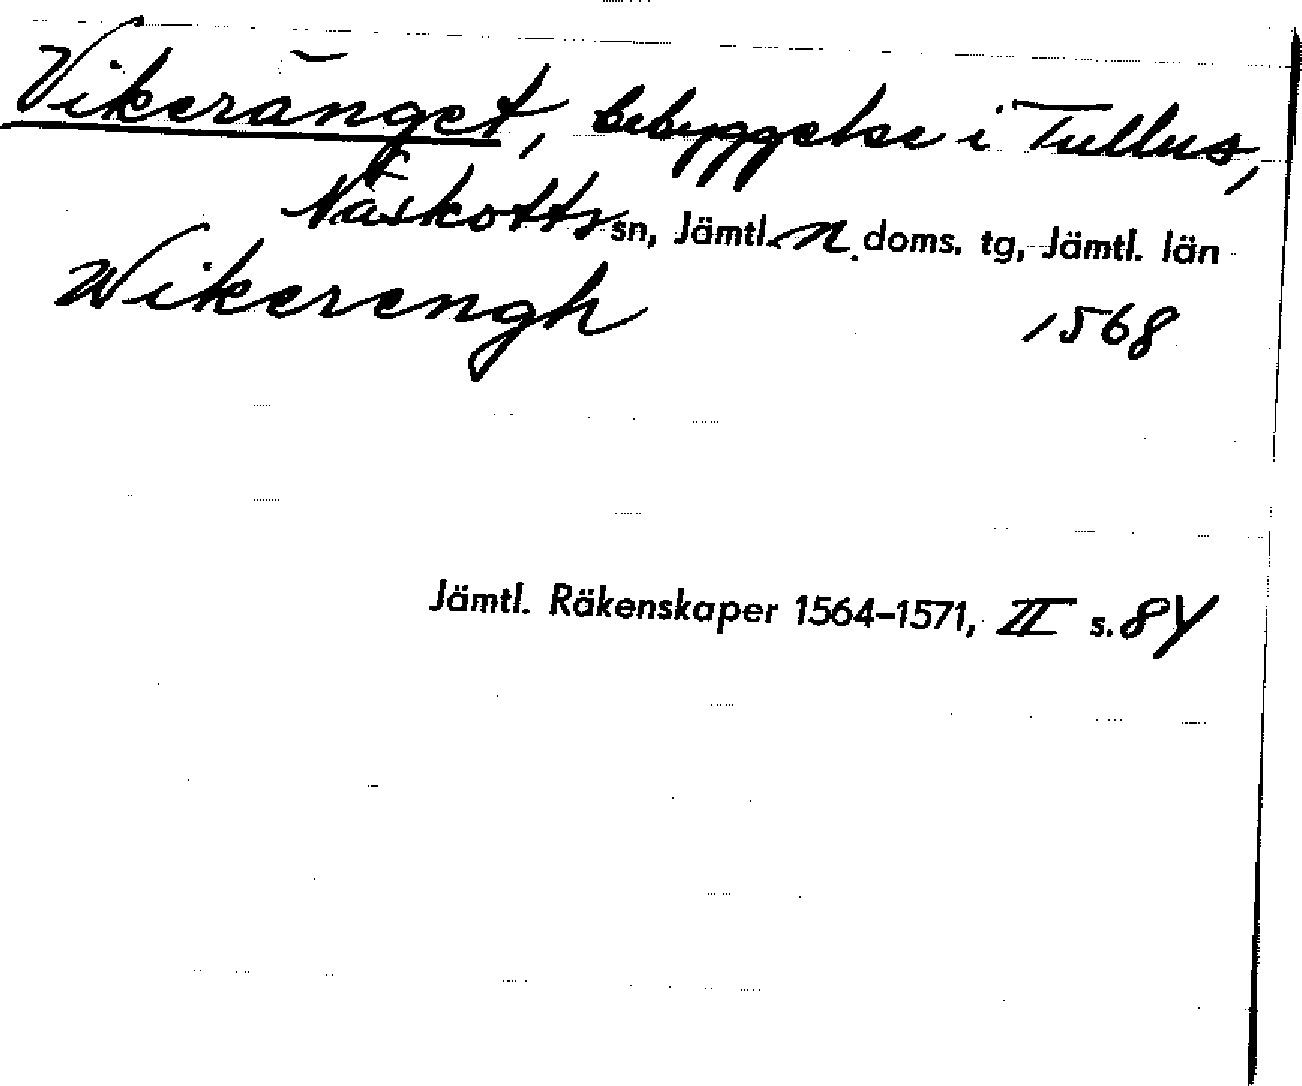 Vikeränget, bebyggelse i Tullus,
Näskotts sn, Jämtl. n. doms. tg, Jämtl. län
Wikerengh 1568
Jämtl. Räkenskaper 1564–1571, II s. 84